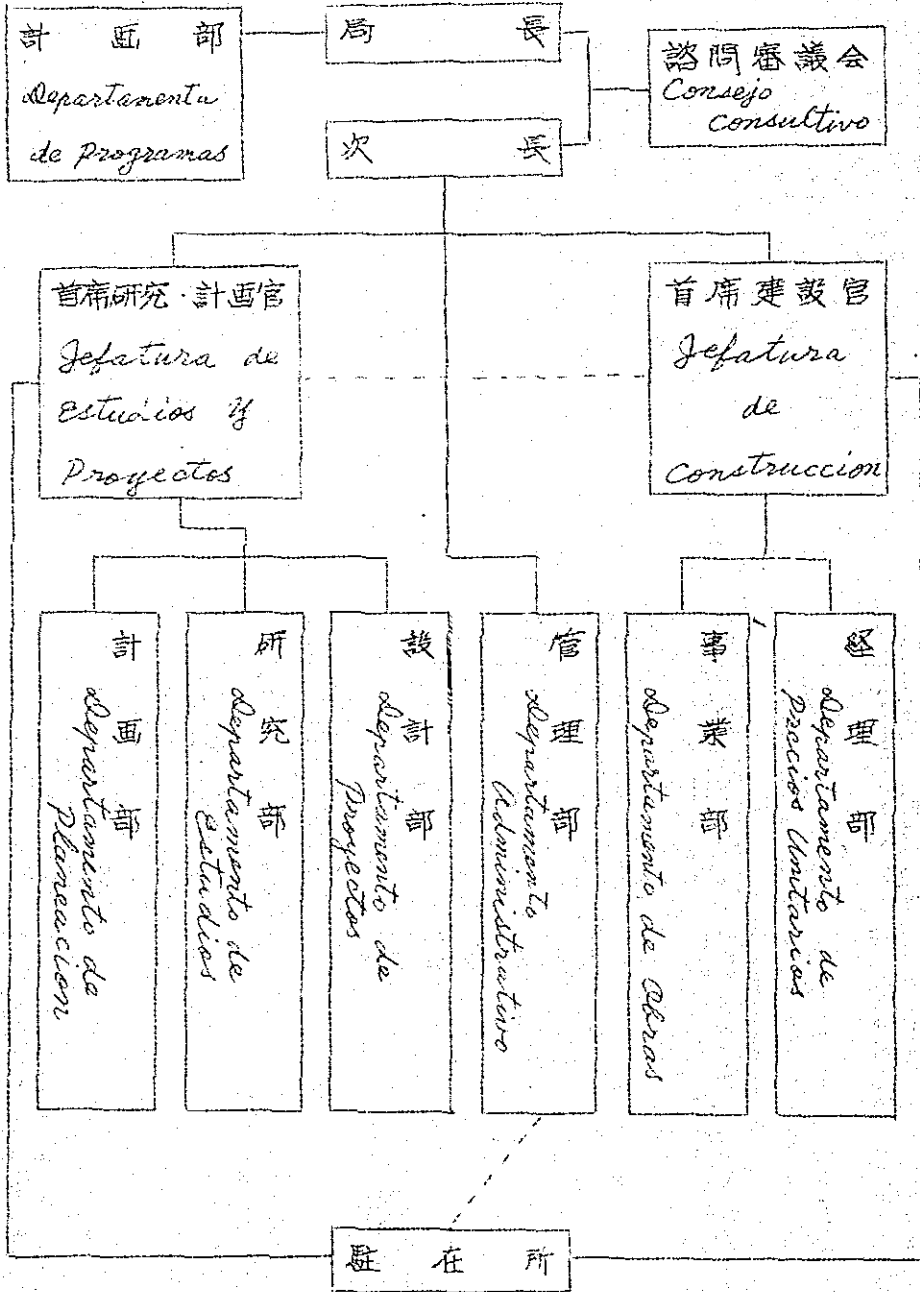 計画部
Departamento
de Programas
局長
次長
諮問審議会
Consejo
Consultivo
首席研究・計画官
Jefatura de
Estudios y
Proyectos
首席建設官
Jefatura
de
Construccion
計画部
Departamento de
Planeacion
研究部
Departamento de
Estudios
設計部
Departamento de
Proyectos
管理部
Departamento
Administrativo
事業部
Departamento de Obras
経理部
Departamento de
Precios Unitarios
駐在所